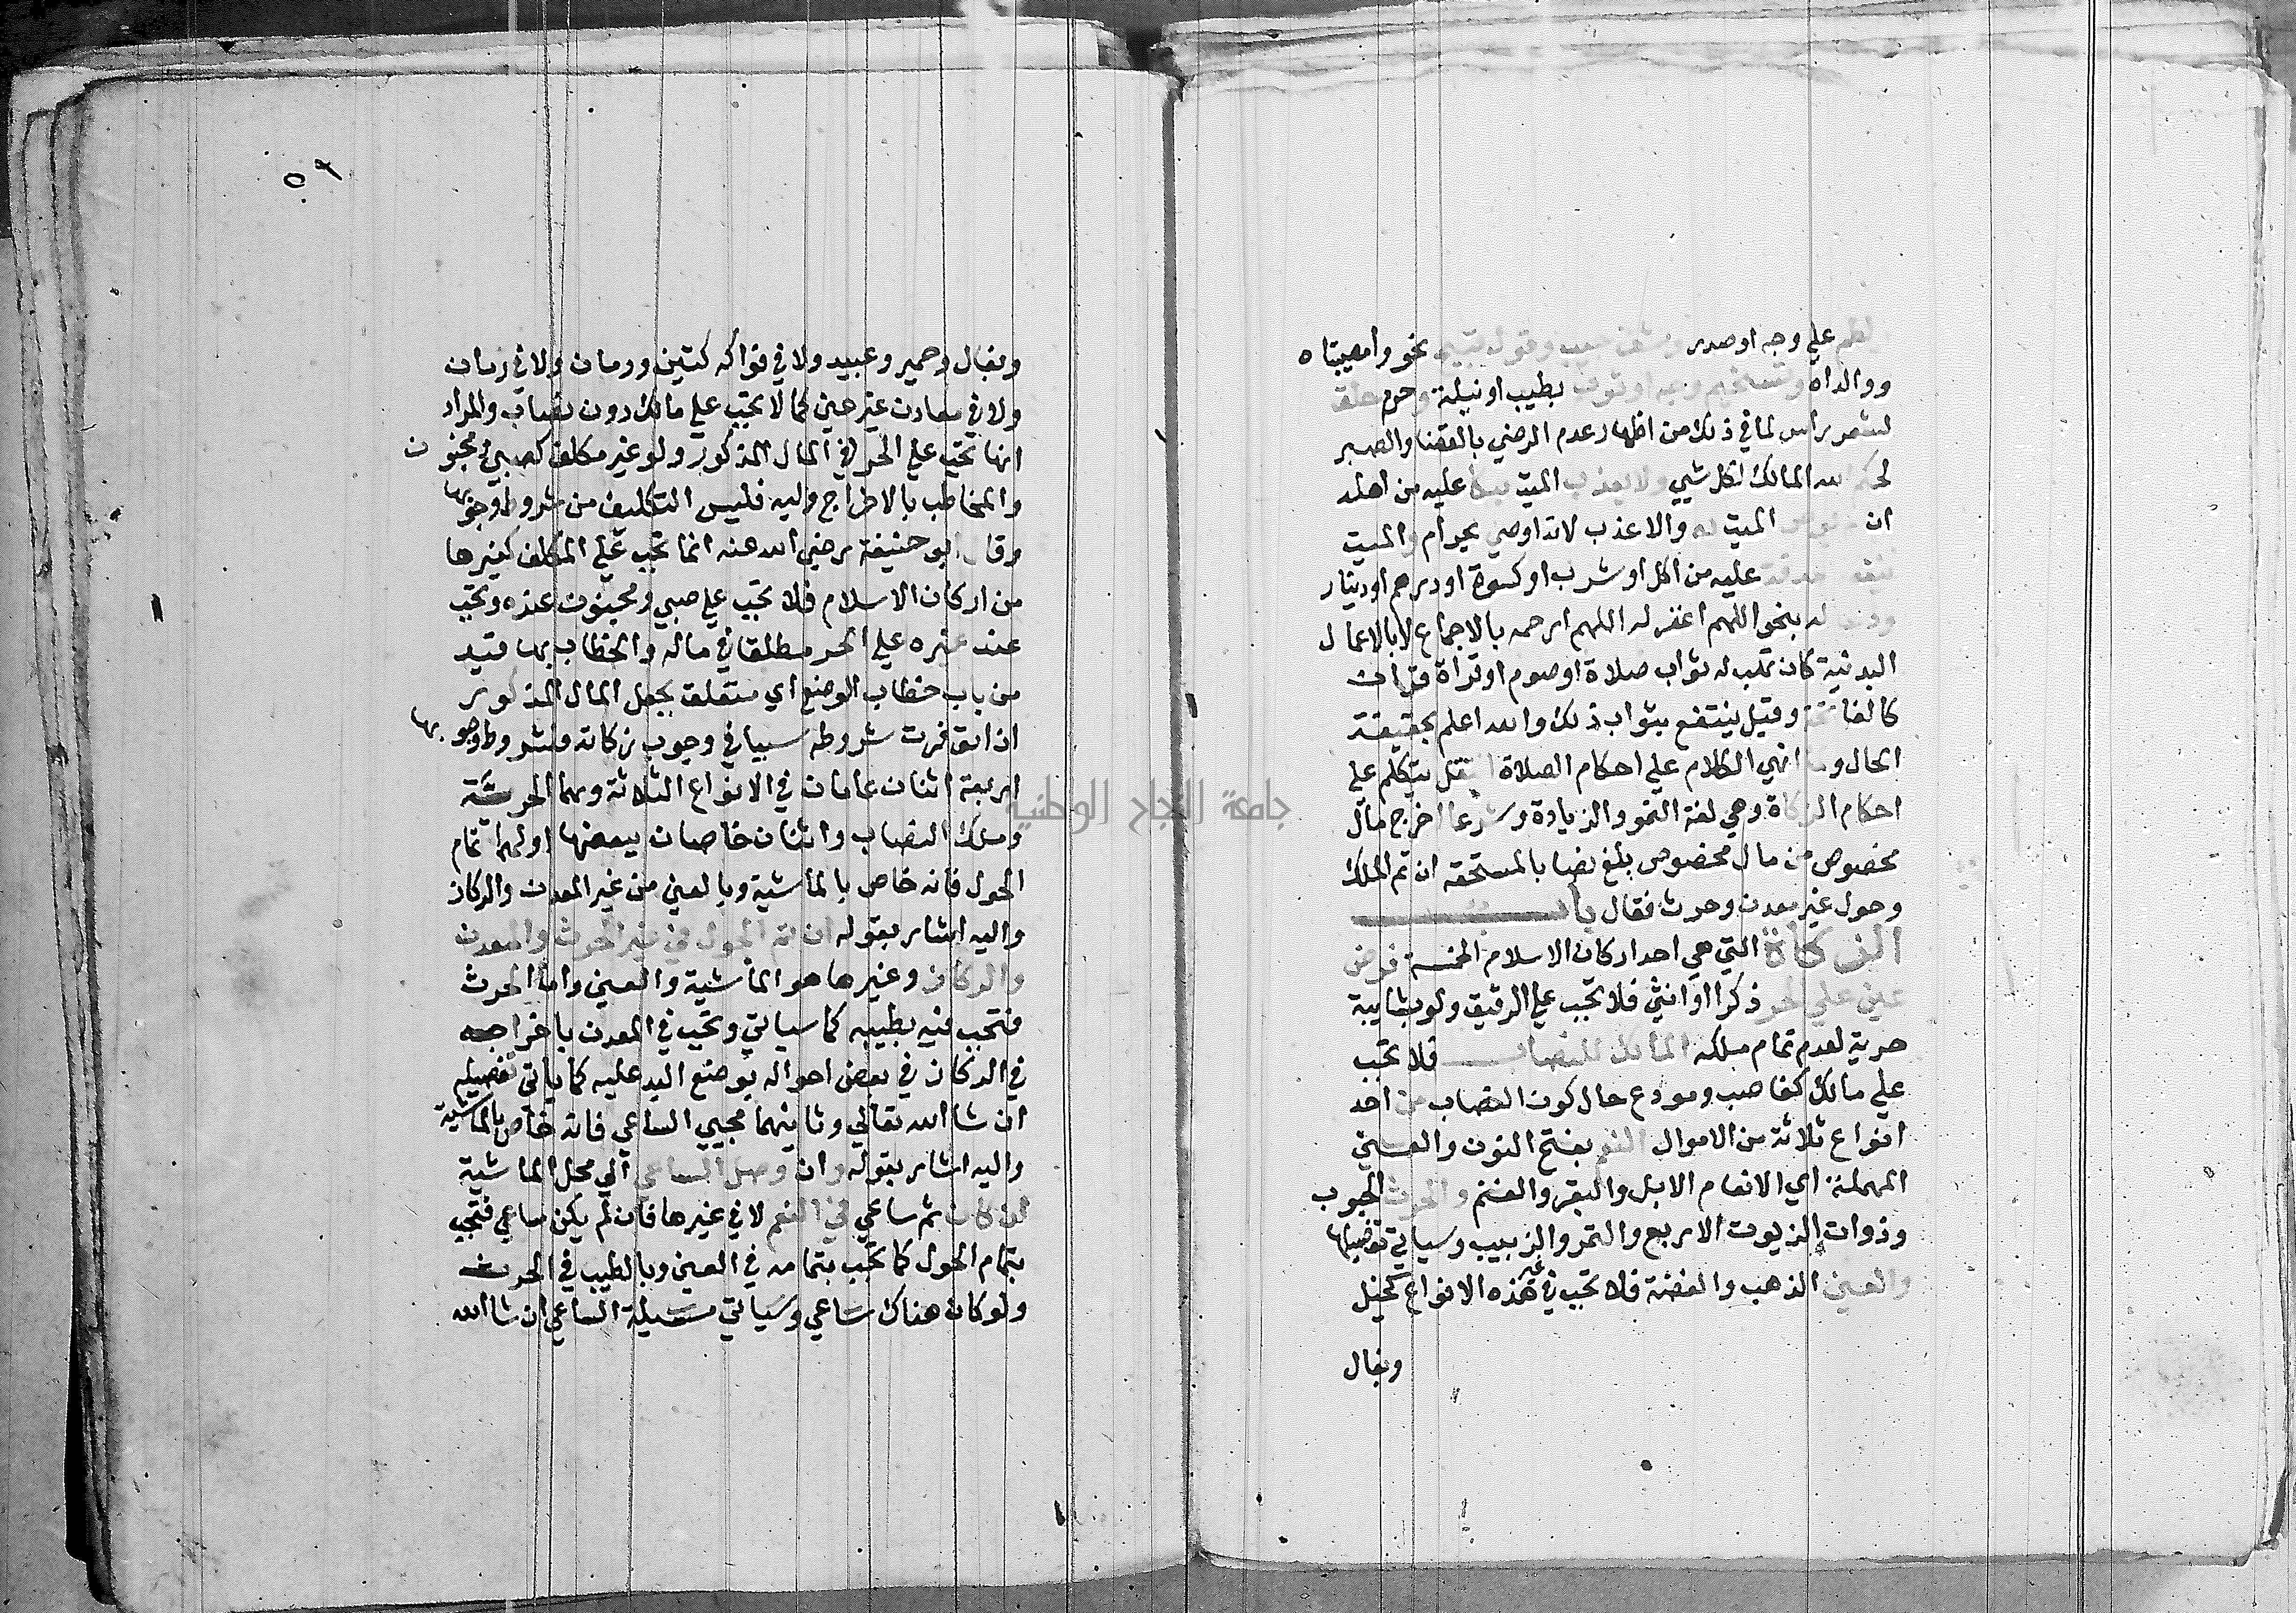 لطم علي وجه او صدر وشق جيب وقول قبيح نحو وامصيبتاه
ووالداه وتسخيم وجه او ثوب بطين او نيلة وحرم حلق
لشعر راس لما في ذلك من اظهار عدم الرضي بالقضا والصبر
لحكم الله المالك لكل شيي ولا يعذب الميت ببكا عليه من اهله
ان الميت به والا عذب لانه اوصي بحرام والميت
ينفعه صدقة عليه من اكل او شرب او كسوة او درهم او دينار
ودعا له بنحو اللهم اغفر له اللهم ارحمه بالاجماع لا بالاعمال
البدنية كان تهب له ثواب صلاة او صوم او قراة قران
كالفاتحة وقيل ينتفع بثواب ذلك والله اعلم بحقيقة
الحال ولما انهي الكلام علي احكام الصلاة انتقل يتكلم علي
احكام الزكاة وهي لغة النمو والزيادة وشرعا اخرج مال
مخصوص من مال مخصوص بلغ نصابا لمستحقه ان تم الملك
وحول غير معدن وحرث فقال باب
الزكاة التي هي احد اركان الاسلام الخمسة فرض
عين علي الحر ذكرا او انثي فلا تجب علي الرقيق ولو بشايبة
حرية لعدم تمام ملكه المالك للنصاب فلا تجب
علي مالك كغاصب ومودع حال كون النصاب من احد
انواع ثلاثة من الاموال النعم بفتح النون والعين
المهملة اي الانعام الابل والبقر والغنم والحرث الحبوب
وذوات الزيوت الاربع والتمر والزبيب وسياتي تفصيلها
والعين الذهب والفضة فلا تجب في غير هذه الانواع كخيل
وبغال
٥٩
وبغال وحمير وعبيد ولا في فواكه كتين ورمان ولا في
ولا في معادن غير عين كما لا تجب علي مالك دون نصاب والمراد
انها تجب علي الحر في المال المذكور ولو غير مكلف كصبي ومجنون
والمخاطب بالاخراج وليه فليس التكليف من شروط وجوبها
وقال ابو حنيفة رضي الله عنه انما تجب علي المكلف كغيرها
من اركان الاسلام فلا تجب علي صبي ومجنون عنده وتجب
عند غيره علي الحر مطلقا في ماله والخطاب بها قيد
من باب خطاب الوضع اي متعلق بجعل المال المذكور
ان توفرت شروطه سببا في وجوب زكاته وشروط وجوبها
اربعة اثنان عامان في الانواع الثلاثة وهما الحرية
وملك النصاب واثنان خاصان ببعضها اولهما تمام
الحول فانه خاص بالماشية وبالعين من غير المعدن والركاز
واليه اشار بقوله ان تم الحول في غير الحرث والمعدن
والركاز وغيرها هو الماشية والعين واما الحرث
فتجب فيه بطيبه كما سياتي وتجب في المعدن باخراجه
في الركاز في بعض احواله بوضع اليد عليه كما ياتي تفصيله
ان شا الله تعالي وثانيهما مجيي الساعي فانه خاص بالماشية
واليه اشار بقوله وان وصل الساعي الي محل الماشية
ان كان ثم ساعي في النعم لا في غيرها فان لم يكن ساعي فتجب
بتمام الحول كما تجب بتمامه في العين وبالطيب في الحرث
ولو كان هناك ساعي وسياتي مسيلة الساعي ان شا الله
جامعة النجاح الوطنية